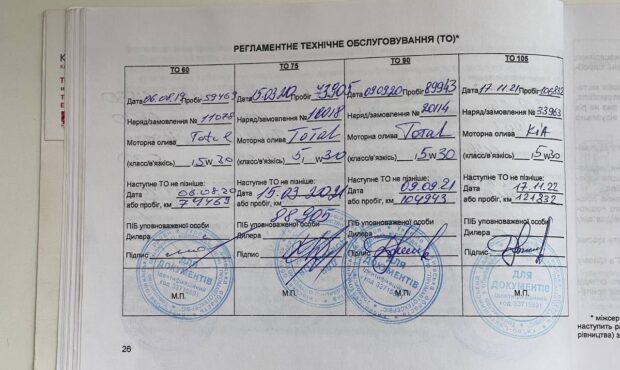 РЕГЛАМЕНТНЕ ТЕХНІЧНЕ ОБСЛУГОВУВАННЯ (ТО)*
ТО 60
Дата 06.08.19 Пробіг 59469
Наряд/замовлення № 11078
Моторна олива Total
(клас/в'язкість) 5 W 30
Наступне ТО не пізніше:
Дата 06.08.20
або пробіг, км 74469
ПІБ уповноваженої особи
Дилера
Підпис
М.П.
ТО 75
Дата 15.03.20 Пробіг 73905
Наряд/замовлення № 18018
Моторна олива Total
(клас/в'язкість) 5 W 30
Наступне ТО не пізніше:
Дата 15.03.2021
або пробіг, км 88905
ПІБ уповноваженої особи
Дилера
Підпис
М.П.
ТО 90
Дата 090920 Пробіг 89943
Наряд/замовлення № 20114
Моторна олива Total
(клас/в'язкість) 5 W 30
Наступне ТО не пізніше:
Дата 09.09.21
або пробіг, км 104943
ПІБ уповноваженої особи
Дилера
Підпис
М.П.
ТО 105
Дата 17.11.21 Пробіг
Наряд/замовлення № 33963
Моторна олива KIA
(клас/в'язкість) 5 W 30
Наступне ТО не пізніше:
Дата 17.11.22
або пробіг, км 121832
ПІБ уповноваженої особи
Дилера
Підпис
М.П.
ДЛЯ
ДОКУМЕНТІВ
Ідентифікаційний
код 33715931
26
* міжсер
наступить ра
рівництва) з